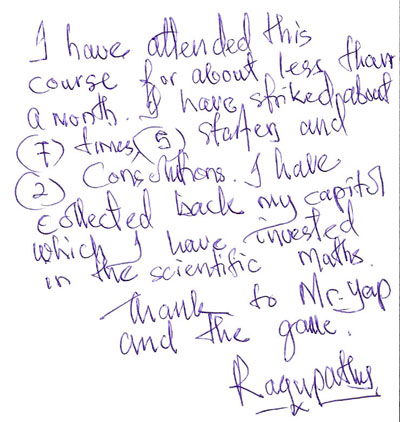 I have attended this
course for about less than
a month. I have striked about
(7) times, (5) starters and
(2) Consolutions. I have
collected back my capitol
which I have invested
in the scientific maths.
thank to Mr. Yap
and the game.
Ragupathy